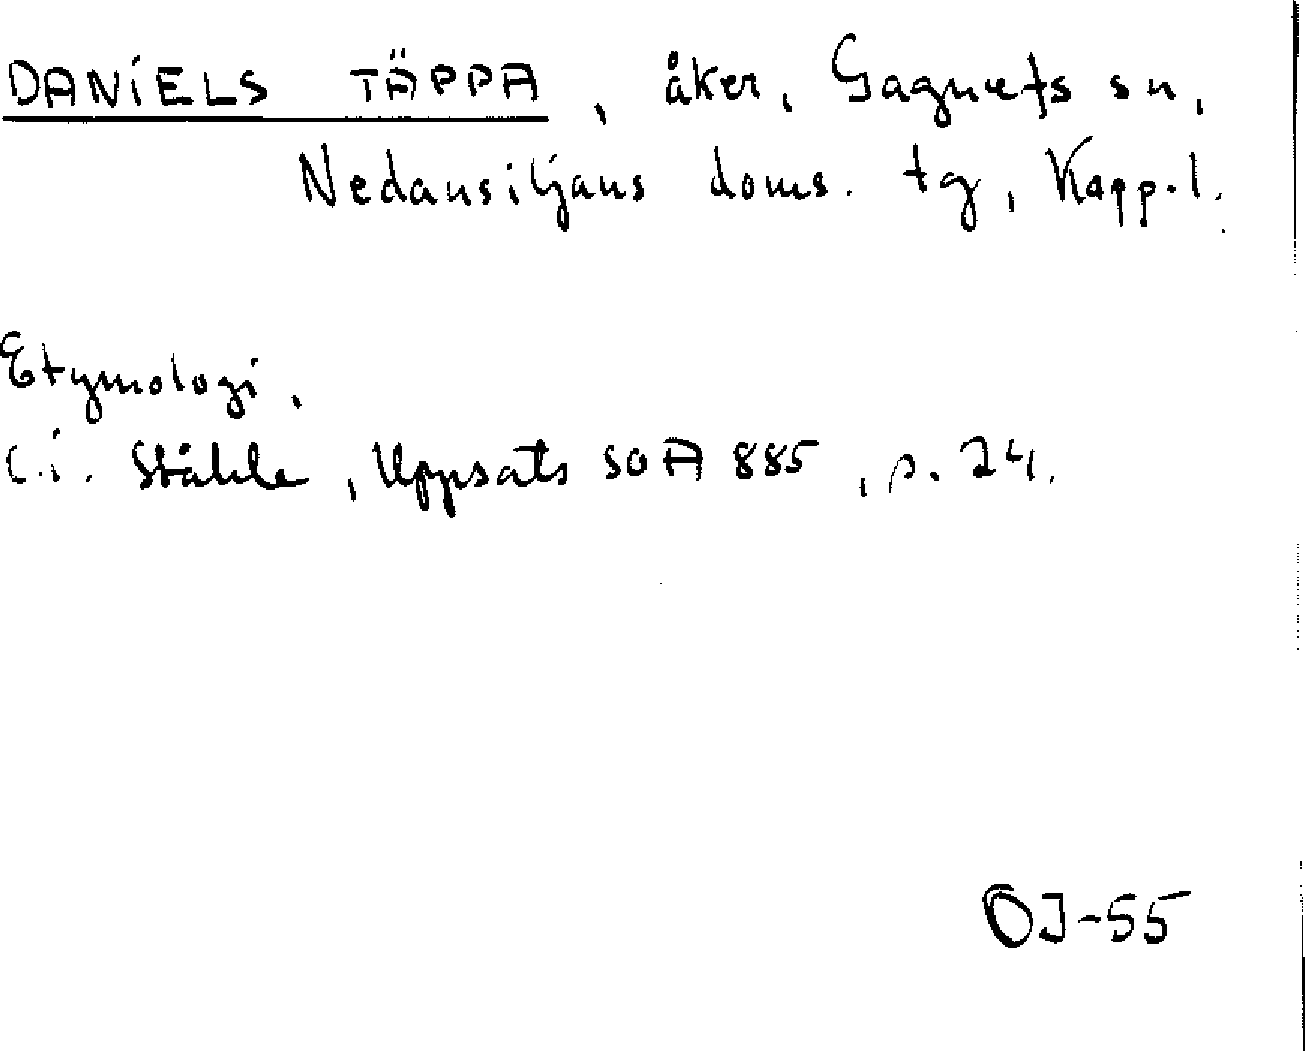 DANIELS TÄPPA, åker, Gagnefs sn,
Nedansiljans doms. tg, Kopp.l.
Etymologi.
C.I. Ståhle, Uppsats SOA 885, s. 24.
OJ-55